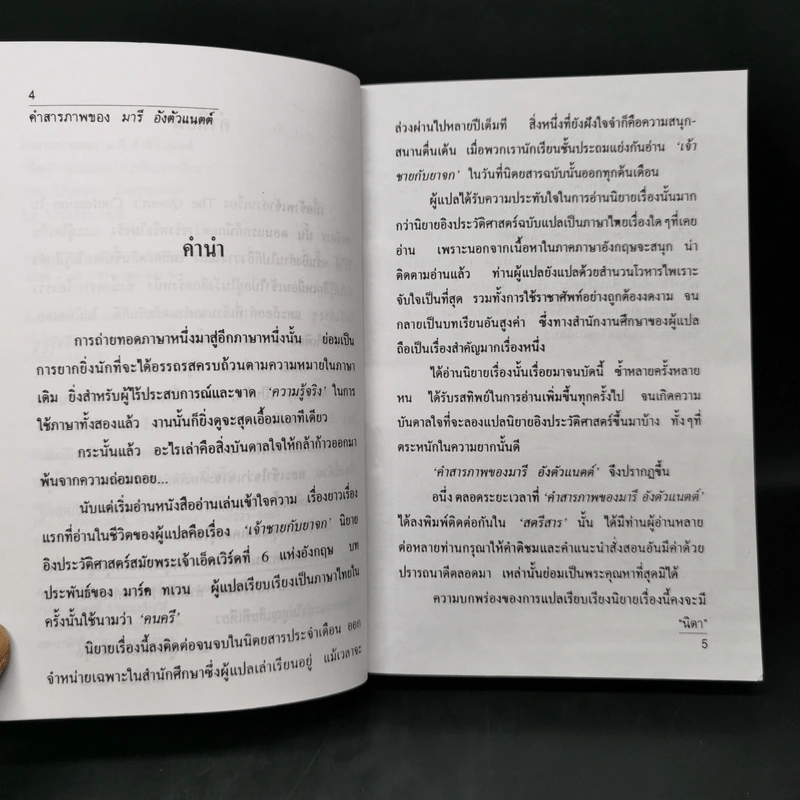 4
คำสารภาพของ มารี อังตัวแนตต์
คำนำ
การถ่ายทอดภาษาหนึ่งมาสู่อีกภาษาหนึ่งนั้น ย่อมเป็น
การยากยิ่งนักที่จะได้อรรถรสครบถ้วนตามความหมายในภาษา
เดิม ยิ่งสำหรับผู้ไร้ประสบการณ์และขาด ‘ความรู้จริง’ ในการ
ใช้ภาษาทั้งสองแล้ว งานนั้นก็ยิ่งดูจะสุดเอื้อมเอาทีเดียว
กระนั้นแล้ว อะไรเล่าคือสิ่งบันดาลใจให้กล้าก้าวออกมา
พ้นจากความถ่อมถอย...
นับแต่เริ่มอ่านหนังสืออ่านเล่นเข้าใจความ เรื่องยาวเรื่อง
แรกที่อ่านในชีวิตของผู้แปลคือเรื่อง ‘เจ้าชายกับยาจก’ นิยาย
อิงประวัติศาสตร์สมัยพระเจ้าเอ็ดเวิร์ดที่ 6 แห่งอังกฤษ บท
ประพันธ์ของ มาร์ค ทเวน ผู้แปลเรียบเรียงเป็นภาษาไทยใน
ครั้งนั้นใช้นามว่า ‘คนครี’
นิยายเรื่องนี้ลงติดต่อจนจบในนิตยสารประจำเดือน ออก
จำหน่ายเฉพาะในสำนักศึกษาซึ่งผู้แปลเล่าเรียนอยู่ แม้เวลาจะ
ล่วงผ่านไปหลายปีเต็มที สิ่งหนึ่งที่ยังฝังใจจำก็คือความสนุก-
สนานตื่นเต้น เมื่อพวกเรานักเรียนชั้นประถมแย่งกันอ่าน ‘เจ้า
ชายกับยาจก’ ในวันที่นิตยสารฉบับนั้นออกทุกต้นเดือน
ผู้แปลได้รับความประทับใจในการอ่านนิยายเรื่องนั้นมาก
กว่านิยายอิงประวัติศาสตร์ฉบับแปลเป็นภาษาไทยเรื่องใดๆที่เคย
อ่าน เพราะนอกจากเนื้อหาในภาคภาษาอังกฤษจะสนุก น่า
ติดตามอ่านแล้ว ท่านผู้แปลยังแปลด้วยสำนวนโวหารไพเราะ
จับใจเป็นที่สุด รวมทั้งการใช้ราชาศัพท์อย่างถูกต้องงดงาม จน
กลายเป็นบทเรียนอันสูงค่า ซึ่งทางสำนักงานศึกษาของผู้แปล
ถือเป็นเรื่องสำคัญมากเรื่องหนึ่ง
ได้อ่านนิยายเรื่องนั้นเรื่อยมาจนบัดนี้ ซ้ำหลายครั้งหลาย
หน ได้รับรสทิพย์ในการอ่านเพิ่มขึ้นทุกครั้งไป จนเกิดความ
บันดาลใจที่จะลองแปลนิยายอิงประวัติศาสตร์ขึ้นมาบ้าง ทั้งๆที่
ตระหนักในความยากนั้นดี
‘คำสารภาพของมารี อังตัวแนตต์’ จึงปรากฏขึ้น
อนึ่ง ตลอดระยะเวลาที่ ‘คำสารภาพของมารี อังตัวแนตต์’
ได้ลงพิมพ์ติดต่อกันใน ‘สตรีสาร’ นั้น ได้มีท่านผู้อ่านหลาย
ต่อหลายท่านกรุณาให้คำติชมและคำแนะนำสั่งสอนอันมีค่าด้วย
ปรารถนาดีตลอดมา เหล่านั้นย่อมเป็นพระคุณหาที่สุดมิได้
ความบกพร่องของการแปลเรียบเรียงนิยายเรื่องนี้คงจะมี
"นิดา"
5